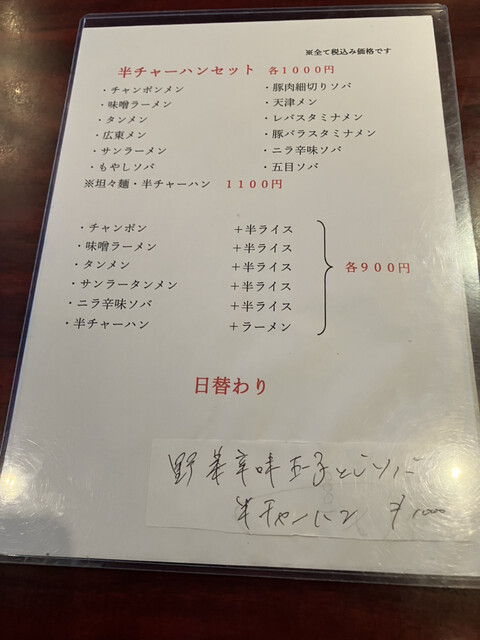 ※全て税込み価格です
半チャーハンセット 各1000円
・チャンポンメン ・豚肉細切りソバ
・味噌ラーメン ・天津メン
・タンメン ・レバスタミナメン
・広東メン ・豚バラスタミナメン
・サンラーメン ・ニラ辛味ソバ
・もやしソバ ・五目ソバ
※坦々麺・半チャーハン 1100円
・チャンポン ＋半ライス
・味噌ラーメン ＋半ライス
・タンメン ＋半ライス
・サンラータンメン ＋半ライス
・ニラ辛味ソバ ＋半ライス
・半チャーハン ＋ラーメン
各900円
日替わり
野菜辛味玉子とじソバ
半チャーハン ¥1000